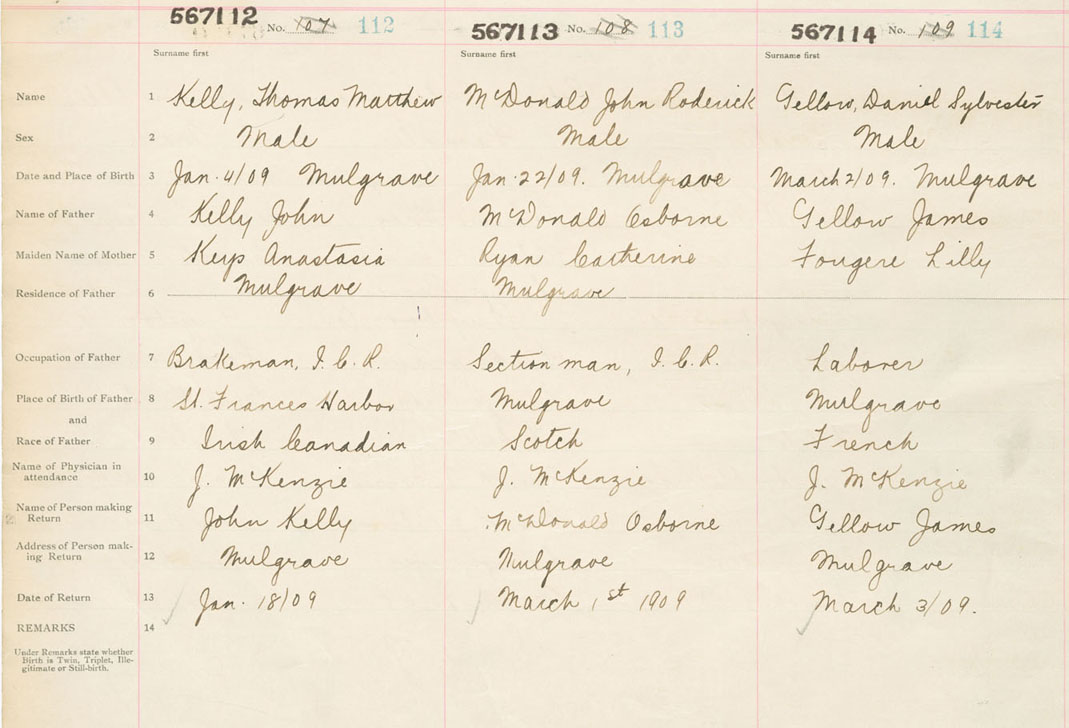 567112 No. 107 112 567113 No. 108 113 567114 No. 109 114
Surname first Surname first Surname first
Name 1 Kelly, Thomas Matthew McDonald John Roderick Gellow, Daniel Sylvester
Sex 2 Male Male Male
Date and Place of Birth 3 Jan. 4/09 Mulgrave Jan. 22/09. Mulgrave March 2/09. Mulgrave
Name of Father 4 Kelly John McDonald Osborne Gellow James
Maiden Name of Mother 5 Keys Anastasia Ryan Catherine Fougere Lilly
Residence of Father 6 Mulgrave Mulgrave
Occupation of Father 7 Brakeman, I.C.R. Section man, I.C.R. Laborer
Place of Birth of Father 8 St. Frances Harbor Mulgrave Mulgrave
and
Race of Father 9 Irish Canadian Scotch French
Name of Physician in
attendance 10 J. McKenzie J. McKenzie J. McKenzie
Name of Person making
Return 11 John Kelly McDonald Osborne Gellow James
Address of Person mak-
ing Return 12 Mulgrave Mulgrave Mulgrave
Date of Return 13 Jan. 18/09 March 1st 1909 March 3/09.
REMARKS 14
Under Remarks state whether
Birth is Twin, Triplet, Ille-
gitimate or Still-birth.